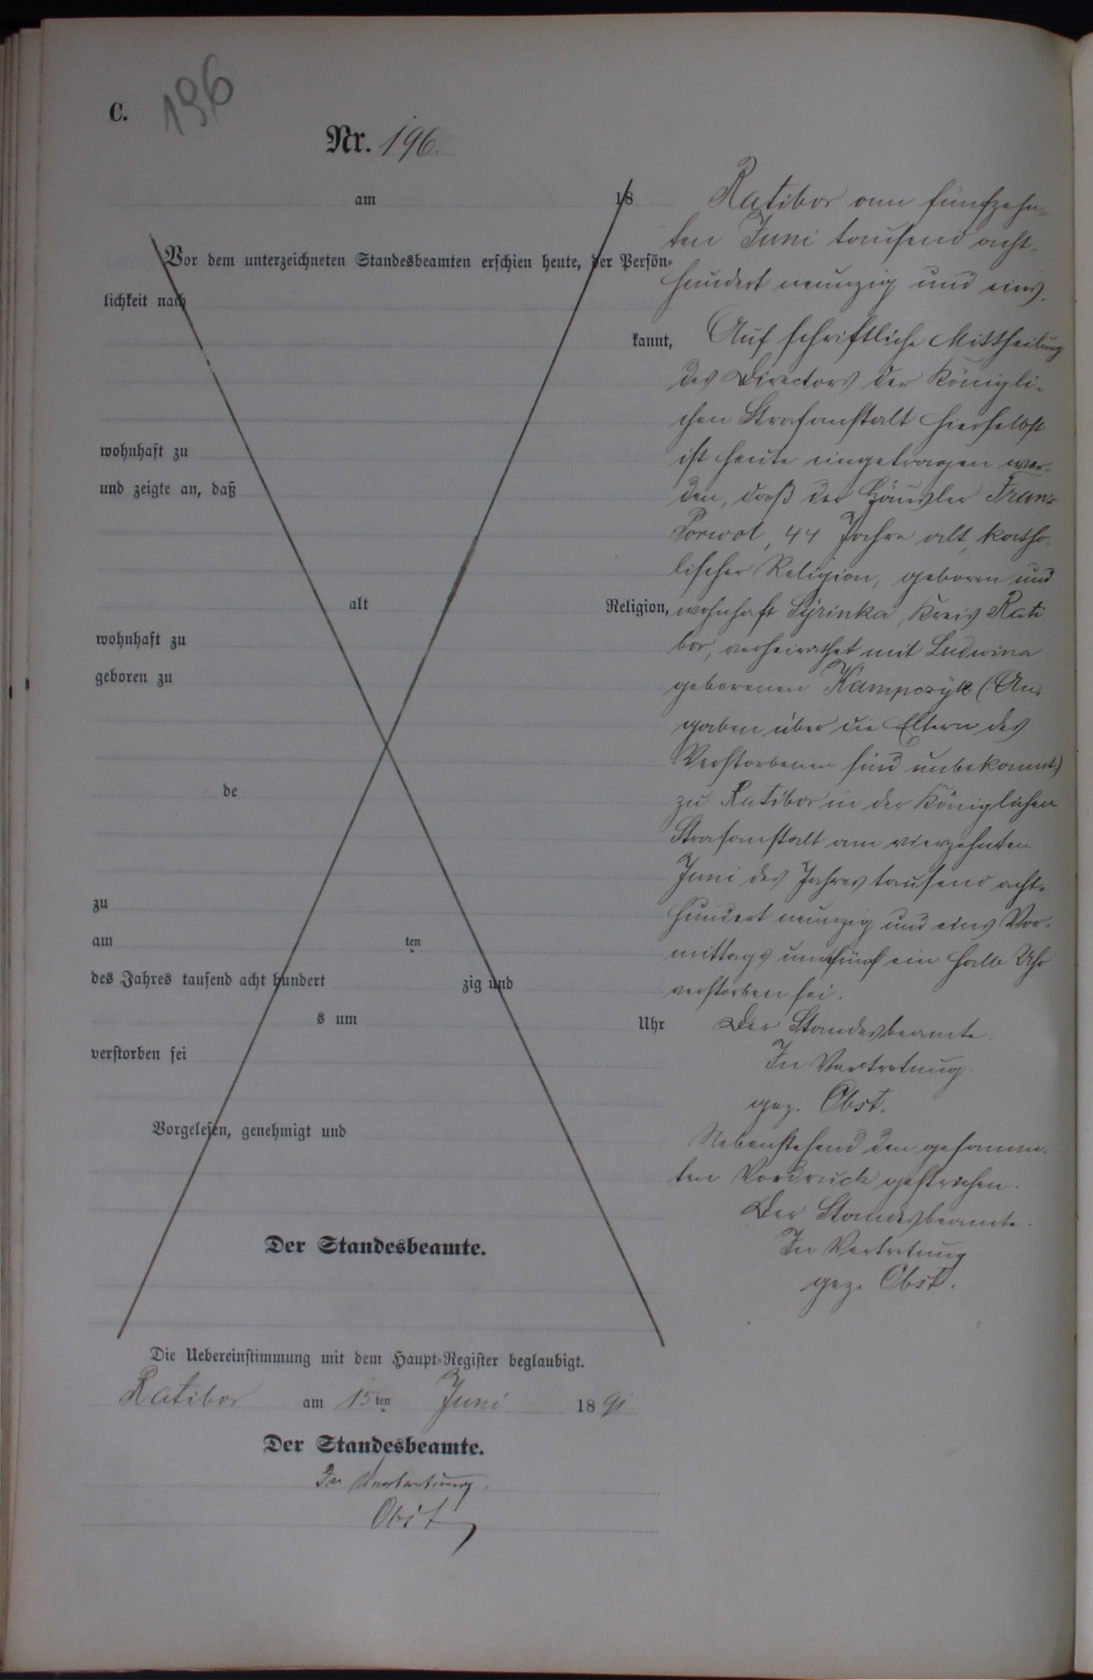 C.
196
Nr. 196.
am 18
Vor dem unterzeichneten Standesbeamten erschien heute, der Persön-
lichkeit nach
kannt,
wohnhaft zu
und zeigte an, daß
alt Religion,
wohnhaft zu
geboren zu
de
zu
am ten
des Jahres tausend acht hundert zig und
s um Uhr
verstorben sei
Vorgelesen, genehmigt und
Der Standesbeamte.
Die Uebereinstimmung mit dem Haupt-Register beglaubigt.
Ratibor am 15ten Juni 1891
Der Standesbeamte.
In Vertretung.
Obst
Ratibor am fünfzehn-
ten Juni tausend acht-
hundert neunzig und eins.
Auf schriftliche Mittheilung
des Directors der Königli-
chen Strafanstalt hierselbst
ist heute eingetragen wor-
den, daß der Häusler Franz
Porwol, 44 Jahre alt, katho-
lischer Religion, geboren und
wohnhaft Syrinka, Kreis Rati
bor, verheirathet mit Ludwina
geborenen Kampczyk (: An-
gaben über die Eltern des
Verstorbenen sind unbekannt)
zu Ratibor in der Königlichen
Strafanstalt am vierzehnten
Juni des Jahres tausend acht-
hundert neunzig und eins Vor-
mittags um fünf ein halb Uhr
verstorben sei.
Der Standesbeamte.
In Vertretung
gez. Obst.
Nebenstehend den gesamm-
ten Vordruck gestrichen.
Der Standesbeamte.
In Vertretung
gez. Obst.